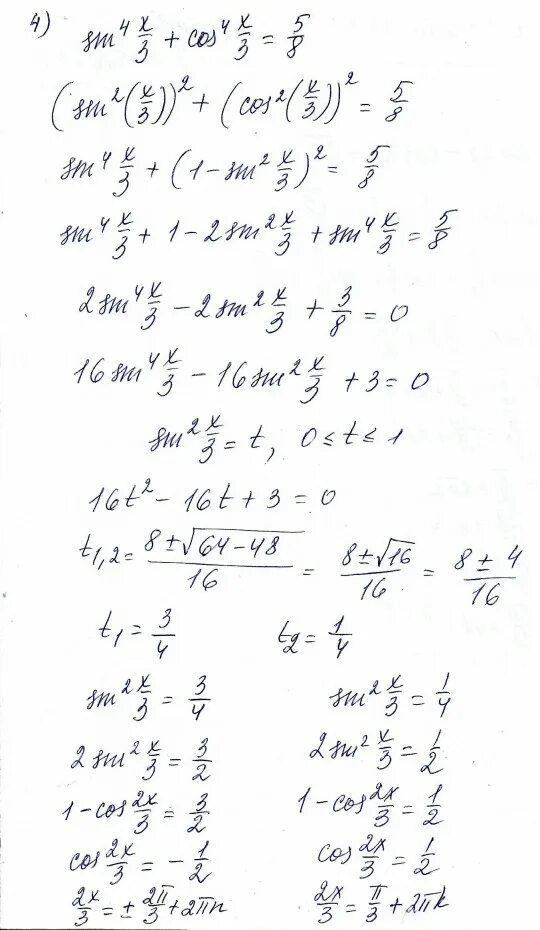 4) sin⁴ x/3 + cos⁴ x/3 = 5/8
(sin²(x/3))² + (cos²(x/3))² = 5/8
sin⁴ x/3 + (1 − sin² x/3)² = 5/8
sin⁴ x/3 + 1 − 2 sin² x/3 + sin⁴ x/3 = 5/8
2 sin⁴ x/3 − 2 sin² x/3 + 3/8 = 0
16 sin⁴ x/3 − 16 sin² x/3 + 3 = 0
sin² x/3 = t, 0 ≤ t ≤ 1
16t² − 16t + 3 = 0
t₁,₂ = (8 ± √(64 − 48))/16 = (8 ± √16)/16 = (8 ± 4)/16
t₁ = 3/4 t₂ = 1/4
sin² x/3 = 3/4 sin² x/3 = 1/4
2 sin² x/3 = 3/2 2 sin² x/3 = 1/2
1 − cos 2x/3 = 3/2 1 − cos 2x/3 = 1/2
cos 2x/3 = − 1/2 cos 2x/3 = 1/2
2x/3 = ± 2π/3 + 2πn 2x/3 = π/3 + 2πk